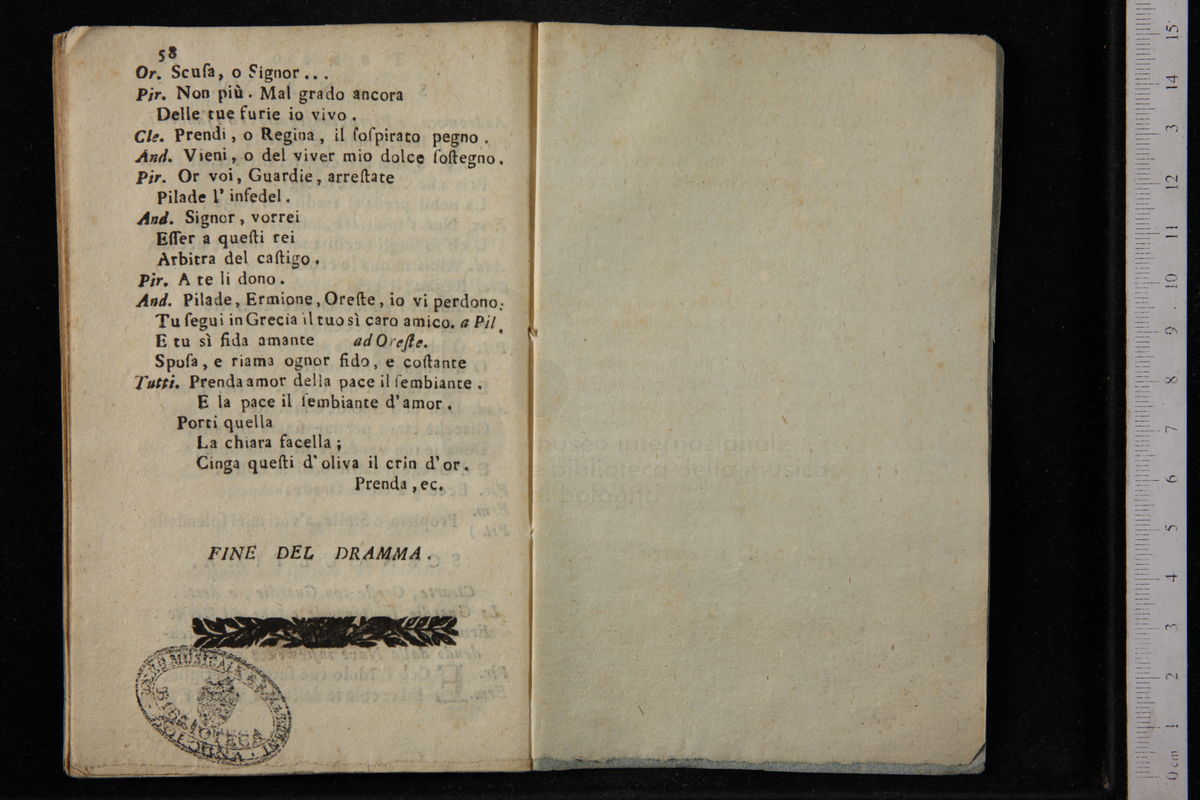 58
Or. Scuſa, o Signor...
Pir. Non più. Mal grado ancora
Delle tue furie io vivo.
Cle. Prendi, o Regina, il ſoſpirato pegno.
And. Vieni, o del viver mio dolce ſoſtegno.
Pir. Or voi, Guardie, arreſtate
Pilade l'infedel.
And. Signor, vorrei
Eſſer a queſti rei
Arbitra del caſtigo.
Pir. A te li dono.
And. Pilade, Ermione, Oreſte, io vi perdono:
Tu ſegui in Grecia il tuo sì caro amico. a Pil.
E tu sì fida amante ad Oreſte.
Spoſa, e riama ognor fido, e coſtante
Tutti. Prenda amor della pace il ſembiante.
E la pace il ſembiante d'amor.
Porti quella
La chiara facella;
Cinga queſti d'oliva il crin d'or.
Prenda, ec.
FINE DEL DRAMMA.
LICEO MUSICALE
BIBLIOTECA
BOLOGNA
museo internazionale
e biblioteca della musica
di bologna
0 cm 1 2 3 4 5 6 7 8 9 10 11 12 3 14 15